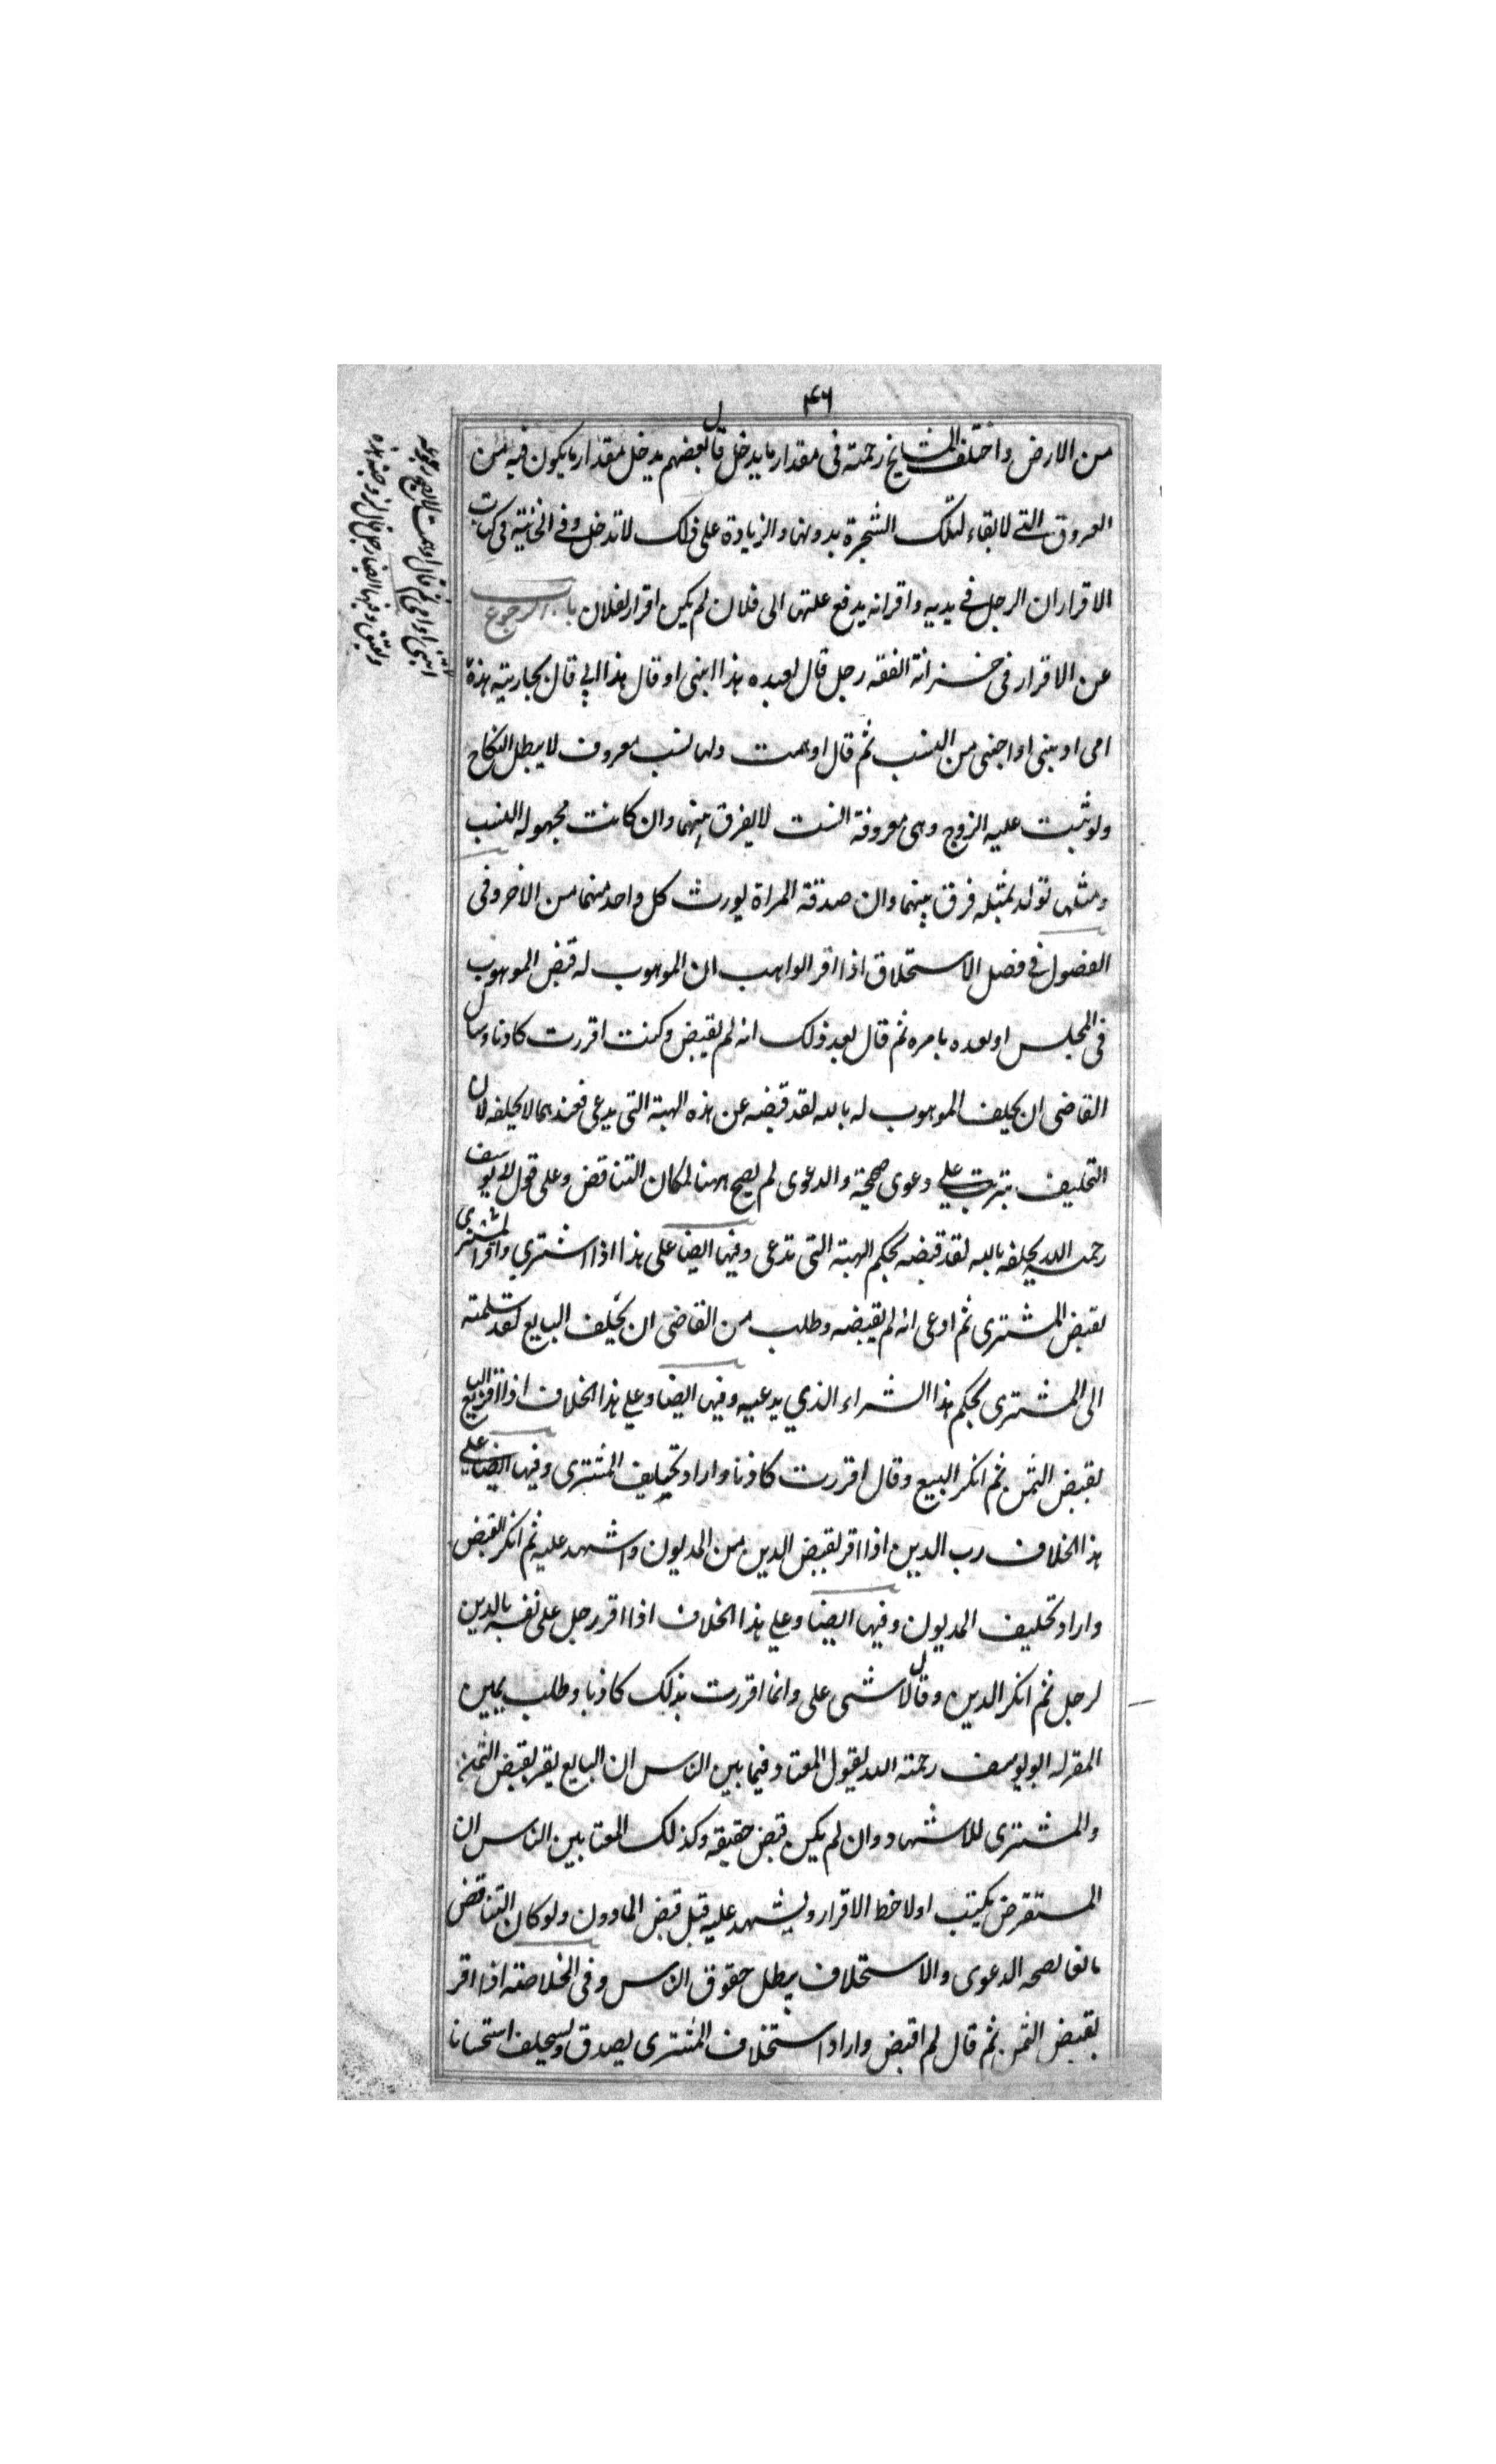 ۴۶
من الارض واختلف المشايخ رحمة فى مقدار ما يدخل قال بعضهم يدخل مقدار ما يكون فيه من
العروق التے لا بقاء لتلك الشجرة بدونها والزيادة على ذلك لا تدخل وفے الخانية فى كتاب
الاقرار ان الرجل فے يديه واقر انه يدفع غلتها الى فلان لم يكن اقرار لفلان باب الرجوع
عن الاقرار فى خزانة الفقه رجل قال لعبده هذا ابنى او قال هذا ابى قال لجاريته هذه
امى او بنتى او اختى من النسب ثم قال اوهمت ولها نسب معروف لا يبطل النكاح
ولو ثبت عليه الزوج وهى معروفة النسب لا يفرق بينهما وان كانت مجهولة النسب
ومثلها تولد لمثله فرق بينهما وان صدقة المراة يورث كل واحد منهما من الاخر وفى
الفصول فے فصل الاستحلاف اذا اقر الواهب ان الموهوب له قبض الموهوب
فى المجلس او بعده بامره ثم قال بعد ذلك انه لم يقبض وكنت اقررت كاذبا وسال
القاضى ان يحلف الموهوب له بالله لقد قبضه عن هذه الهبة التى يدعى فعندهما لا يحلفه لان
التحليف يترتب على دعوى صحيحة والدعوى لم يصح ههنا لمكان التناقض وعلى قول ابو يوسف
رحمه الله يحلفه بالله لقد قبضه بحكم الهبة التى تدعى وفيها ايضا على هذا اذا اشترى واقر المشترى
بقبض المشترى ثم ادعى انه لم يقبضه وطلب من القاضى ان يحلف البايع لقد سلمته
الى المشترى بحكم هذا الشراء الذي يدعيه وفيها ايضا وعلى هذا الخلاف اذا اقر البايع
بقبض الثمن ثم انكر البيع وقال اقررت كاذبا واراد تحليف المشترى وفيها ايضا على
هذا الخلاف رب الدين اذا اقر بقبض الدين من المديون واشهد عليه ثم انكر القبض
واراد تحليف المديون وفيها ايضا وعلى هذا الخلاف اذا اقر رجل على نفسه بالدين
لرجل ثم انكر الدين وقال لا شى على وانما اقررت بذلك كاذبا وطلب يمين
المقر له ابو يوسف رحمته الله يقول المعتاد فيما بين الناس ان البايع يقر بقبض الثمن
والمشترى للاشهاد وان لم يكن قبض حقيقة وكذلك المعتا بين الناس ان
المستقرض يكتب اولا خط الاقرار ويشهد عليه قبل قبض المادون ولو كان التناقض
مانعا لصحه الدعوى والاستحلاف يبطل حقوق الناس وفى الخلاصة اذا اقر
بقبض الثمن ثم قال لم اقبض واراد استحلاف المشترى يصدق ويستحلف استحسانا